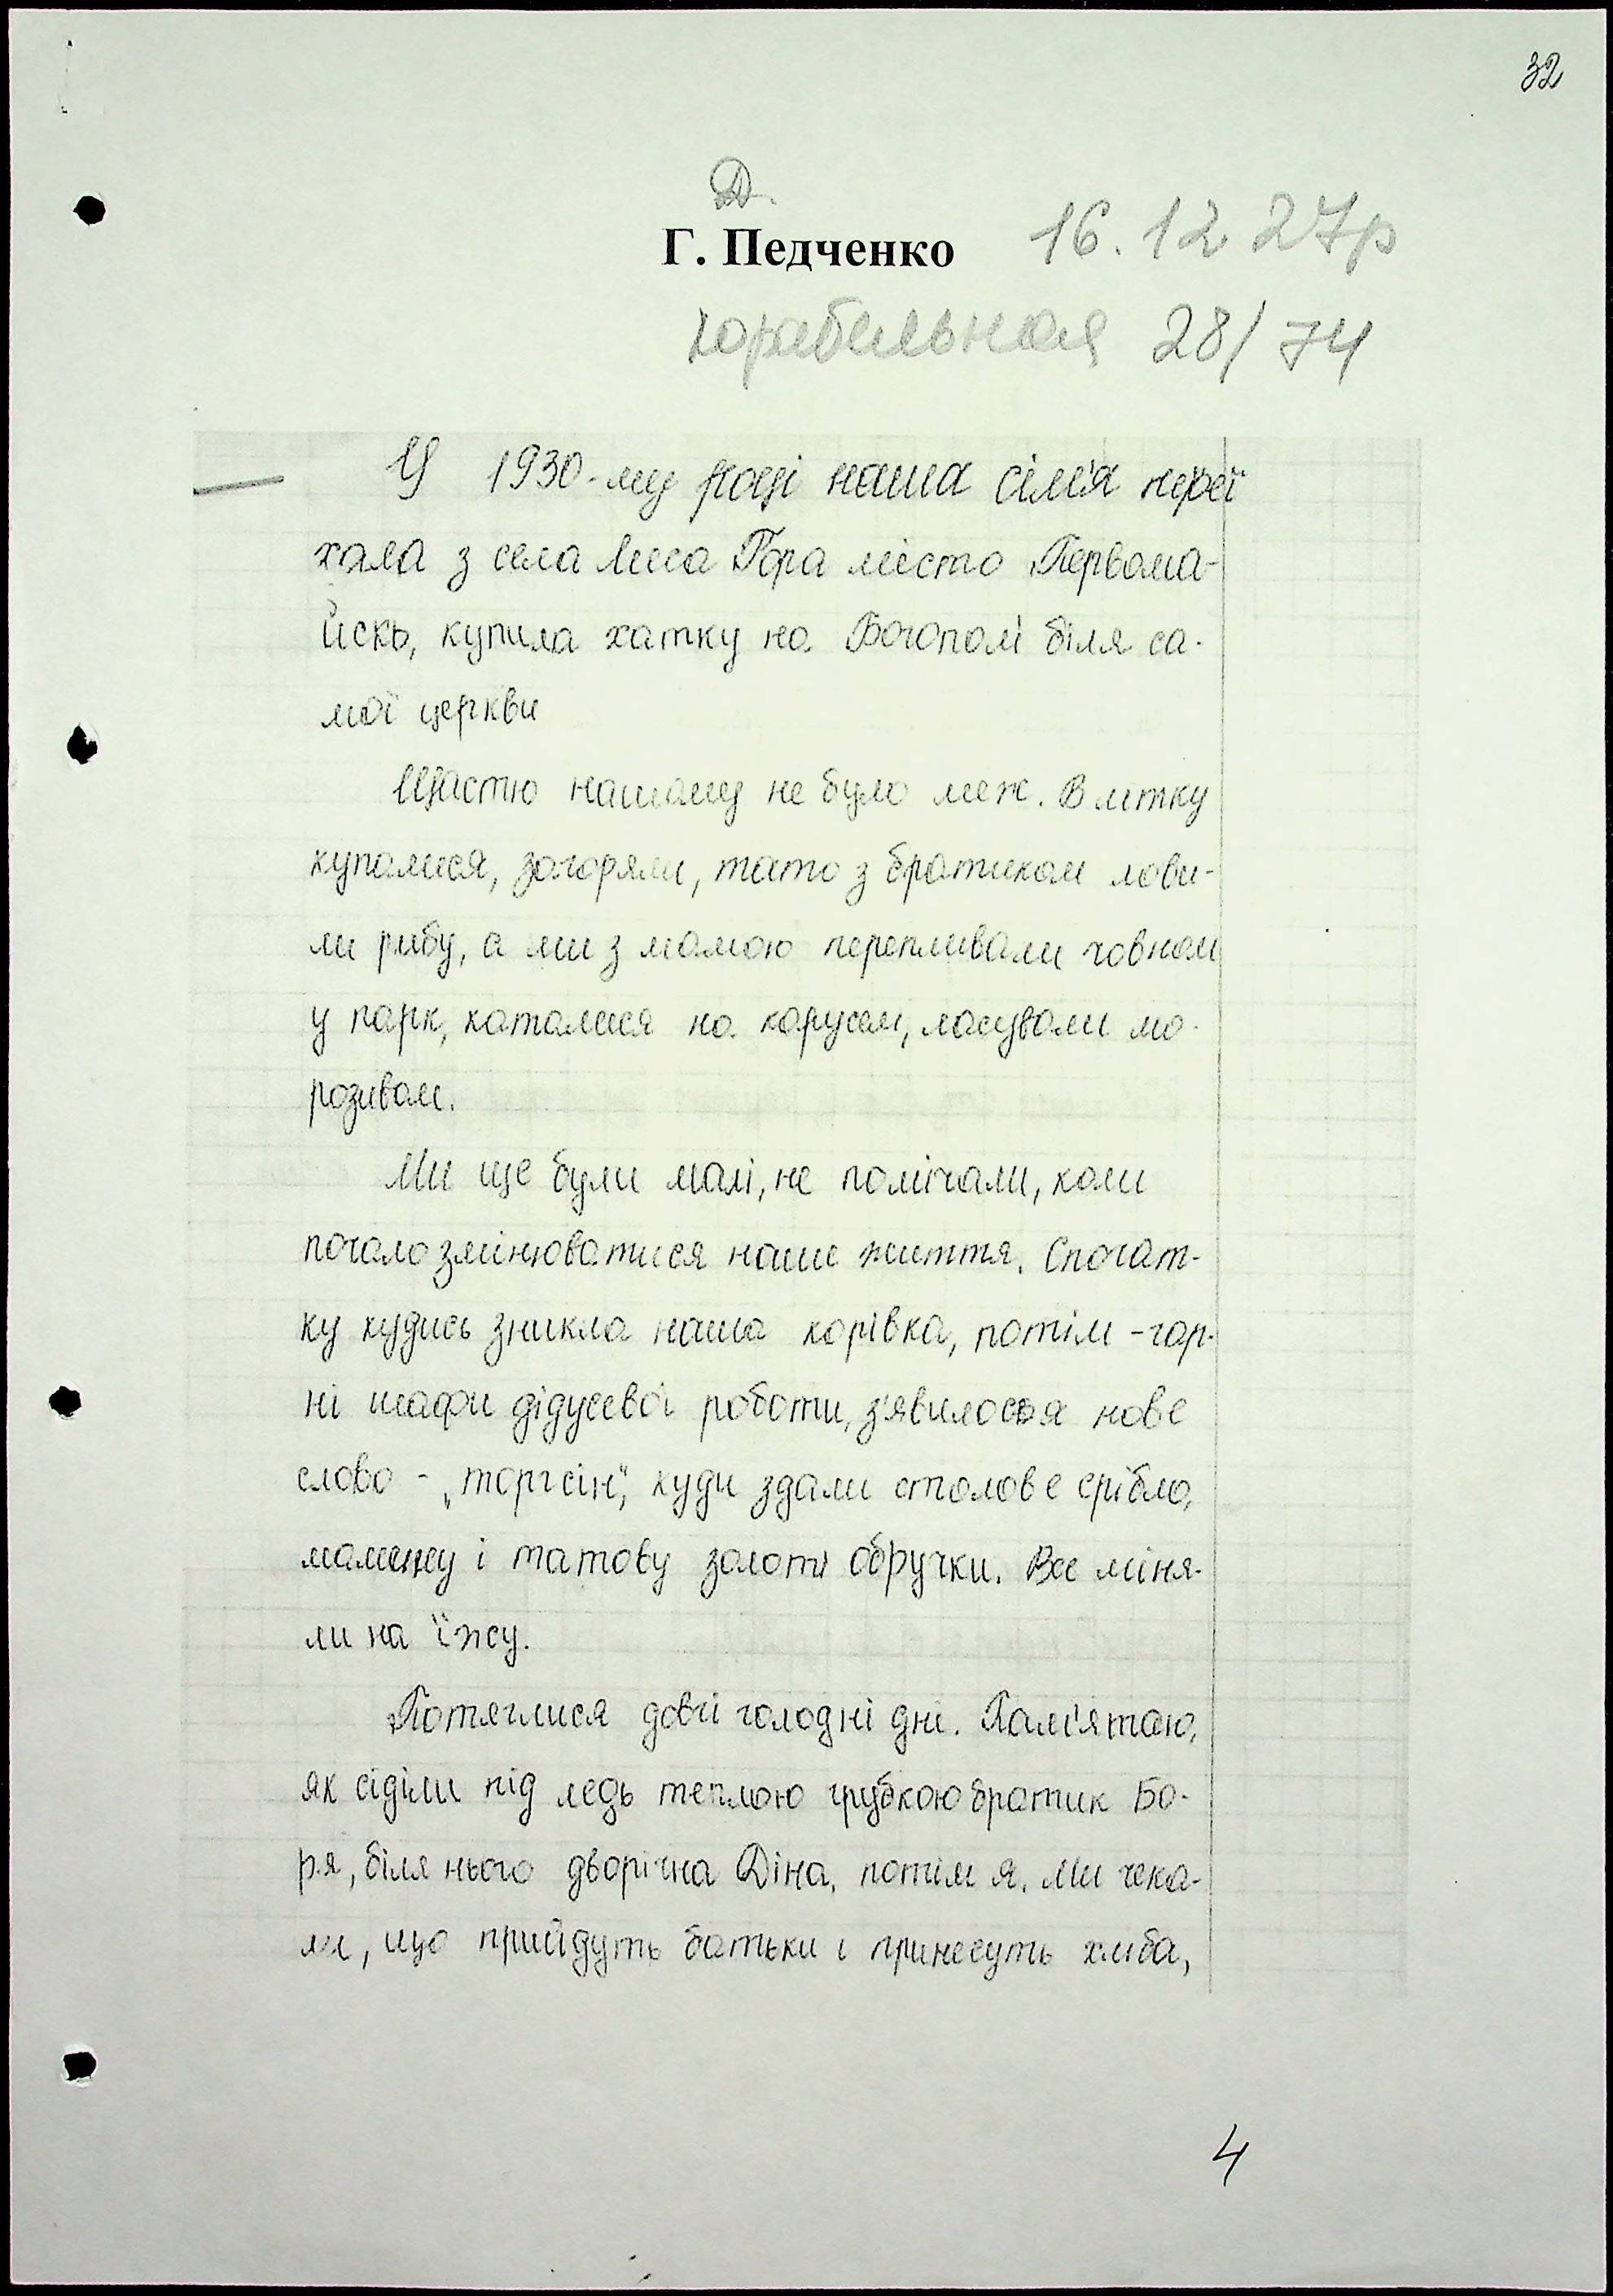 32
Д.
Г. Педченко 16.12 27р
корабельная 28/74
У 1930-му році наша сім'я переї
хала з села Лиса Гора місто Первома-
йськ, купила хатку на Богополі біля са-
мої церкви
Щастю нашому не було меж. Влітку
купалися, загоряли, тато з братиком лови-
ли рибу, а ми з мамою перепливали човном
у парк, каталися на карусели, ласували мо-
розивом.
Ми ще були малі, не помічали, коли
почало змінюватися наше життя. Спочат-
ку кудись зникла наша корівка, потім - гар-
ні шафи дідусевої роботи, з'явилося нове
слово - „торгсін“, куди здали столове срібло,
мамину і татову золоті обручки. Все міня-
ли на їжу.
Потяглися довгі голодні дні. Пам'ятаю,
як сіділи під ледь теплою грубкою братик Бо-
ря, біля нього дворічна Діна, потім я. Ми чека-
ли, що прийдуть батьки і принесуть хліба,
4